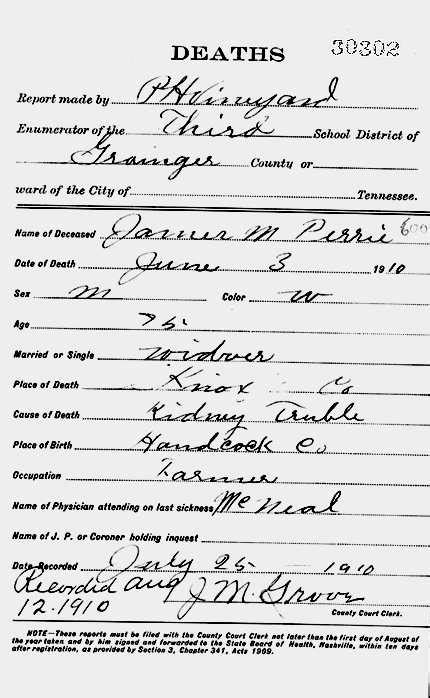 DEATHS 30302
Report made by P H Vineyard
Enumerator of the Third School District of
Grainger County or
ward of the City of Tennessee.
Name of Deceased James M Perrie 600
Date of Death June 3 1910
Sex m Color w
Age 75
Married or Single widover
Place of Death Knox Co
Cause of Death Kidney Truble
Place of Birth Handcock Co
Occupation Farmer
Name of Physician attending on last sickness McNeal
Name of J. P. or Coroner holding inquest
Date Recorded July 25 1910
Recorded aug J M. Groov
12.1910 County Court Clerk.
NOTE—These reports must be filed with the County Court Clerk not later than the first day of August of
the year taken and by him signed and forwarded to the State Board of Health, Nashville, within ten days
after registration, as provided by Section 3, Chapter 341, Acts 1909.